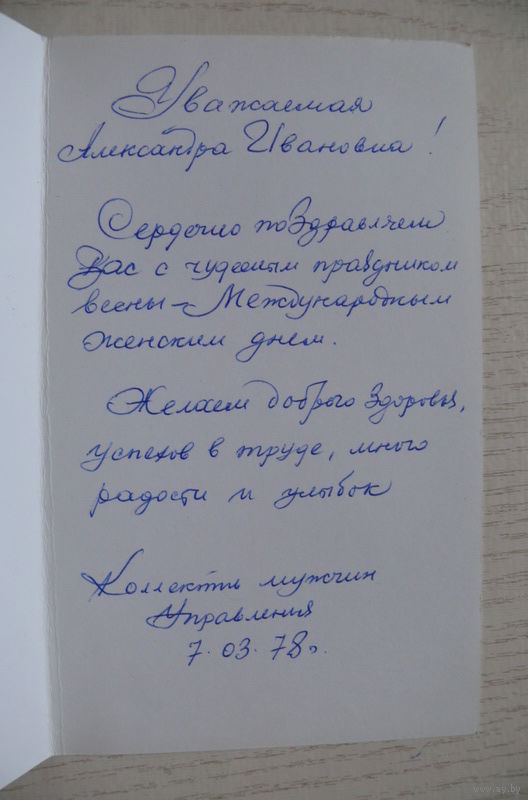 Уважаемая
Александра Ивановна!
Сердечно поздравляем
Вас с чудесным праздником
весны – Международным
женским днем.
Желаем доброго здоровья,
успехов в труде, много
радости и улыбок
Коллектив мужчин
Управления
7.03.78г.
www.ay.by